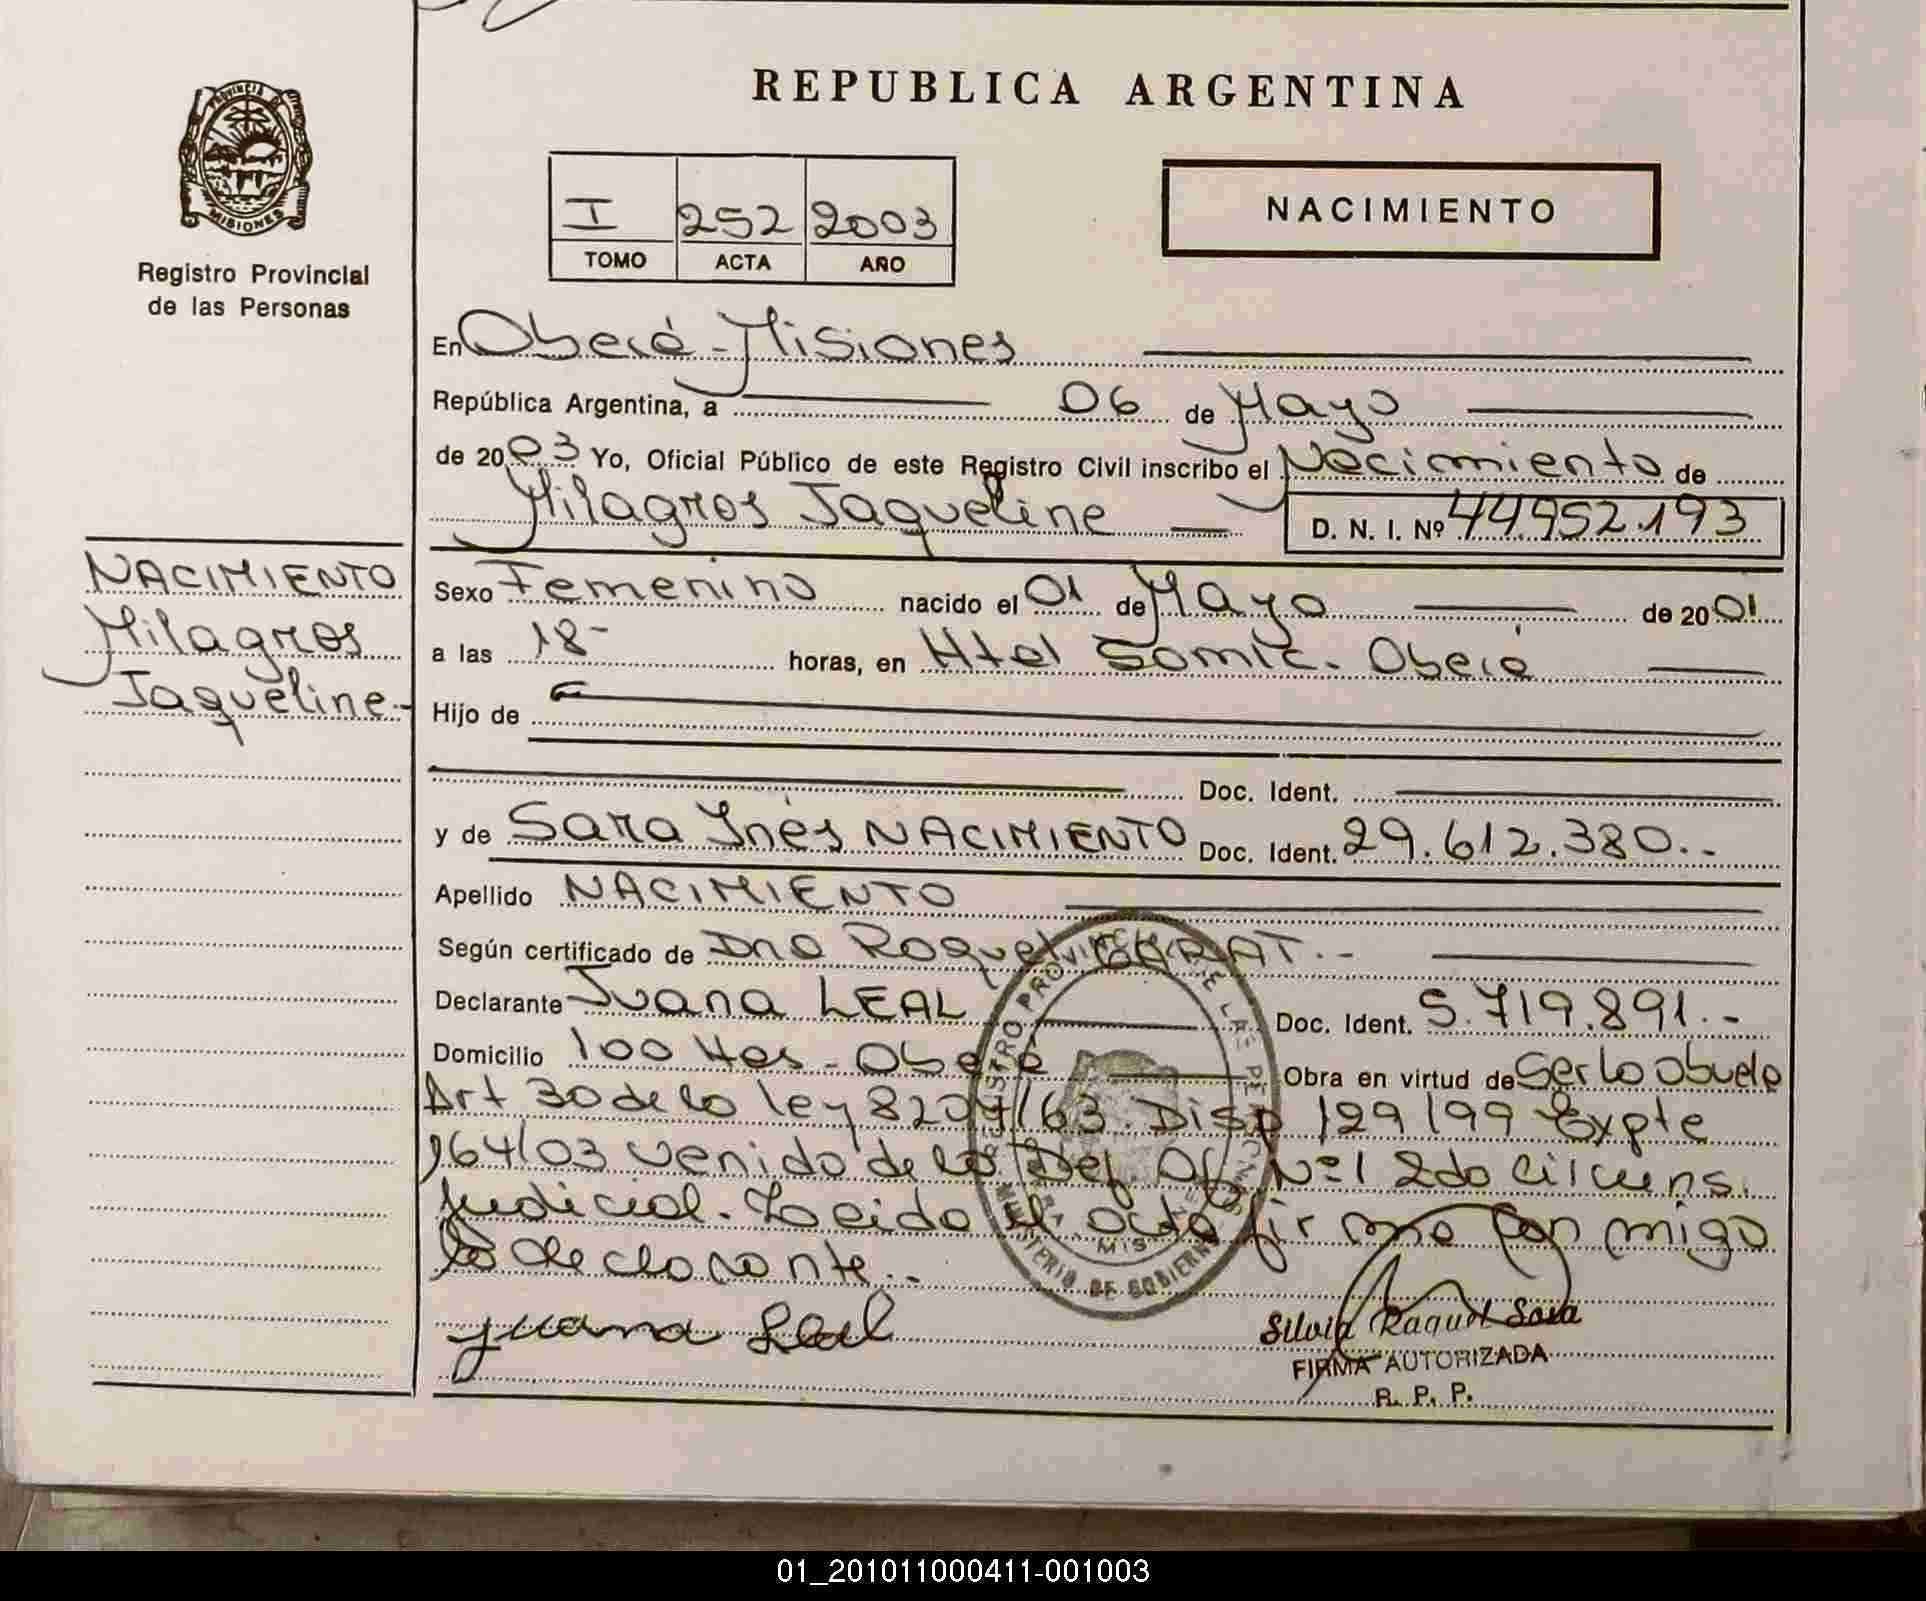 REPUBLICA ARGENTINA
PROVINCIA DE
MISIONES
Registro Provincial
de las Personas
I 252 2003
TOMO ACTA AÑO
NACIMIENTO
En Oberá - Misiones
República Argentina, a 06 de Mayo
de 2003 Yo, Oficial Público de este Registro Civil inscribo el Nacimiento de
Milagros Jaqueline
D. N. I. Nº 44.952.193
NACIMIENTO
Milagros
Jaqueline.-
Sexo Femenino nacido el 01 de Mayo de 2001
a las 18- horas, en Htal Samic. Oberá
Hijo de
Doc. Ident.
y de Sara Inés NACIMIENTO Doc. Ident. 29.612.380.-
Apellido NACIMIENTO
Según certificado de Dra Raquel GARAT.-
Declarante Juana LEAL Doc. Ident. 5.719.891.-
Domicilio 100 Has - Oberá Obra en virtud de Ser la abuela
Art 30 de la ley 8204/63. Disp 129/99 Expte
164/03 venido de la Def. Of. Nº 1 2da Circuns.
Judicial. Leida el acta firma con migo
la declarante.-
Juana Leal
Silvia Raquel Sosa
FIRMA AUTORIZADA
R. P. P.
REGISTRO PROVINCIAL DE LAS PERSONAS
MINISTERIO DE GOBIERNO
01_201011000411-001003